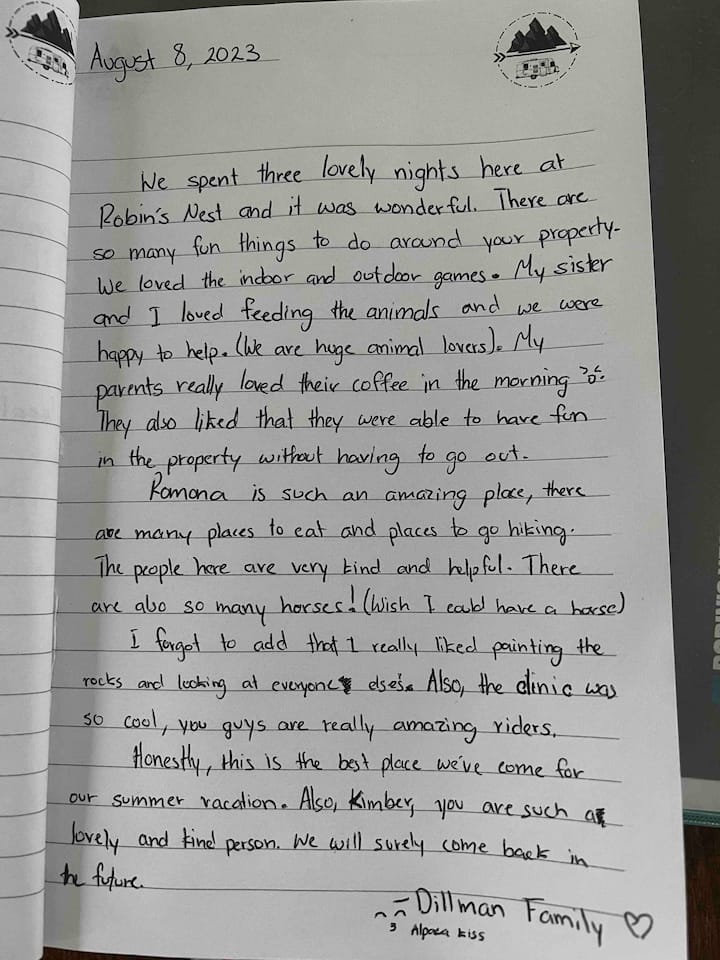 August 8, 2023
We spent three lovely nights here at
Robin's Nest and it was wonderful. There are
so many fun things to do around your property.
We loved the indoor and outdoor games. My sister
and I loved feeding the animals and we were
happy to help. (We are huge animal lovers). My
parents really loved their coffee in the morning
They also liked that they were able to have fun
in the property without having to go out.
Ramona is such an amazing place, there
are many places to eat and places to go hiking.
The people here are very kind and helpful. There
are also so many horses! (Wish I could have a horse)
I forgot to add that I really liked painting the
rocks and looking at everyone else's. Also, the clinic was
so cool, you guys are really amazing riders.
Honestly, this is the best place we've come for
our summer vacation. Also, Kimber, you are such a
lovely and kind person. We will surely come back in
the future.
- Dillman Family ♡
Alpaca kiss